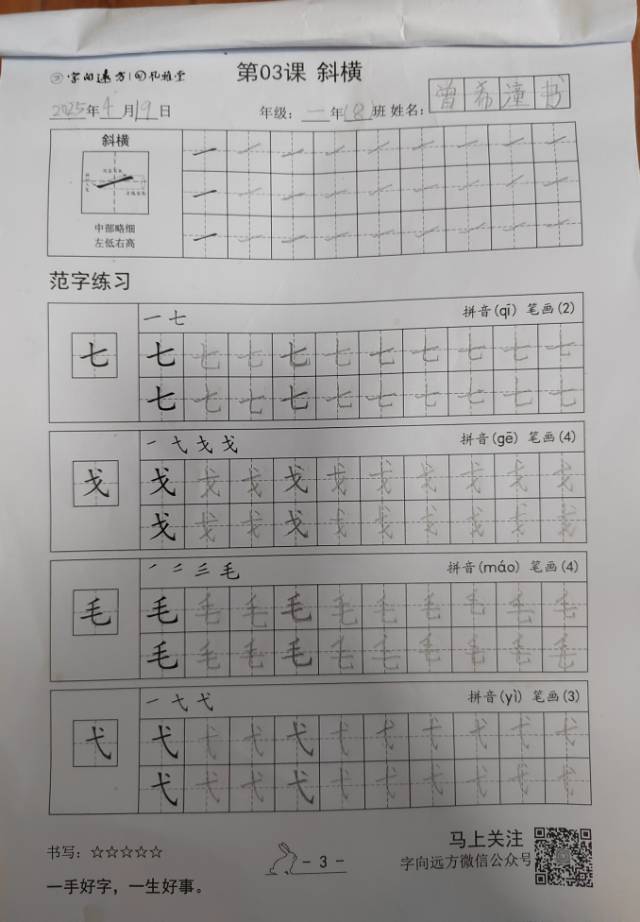 字向远方 孔雅堂 第03课 斜横
2025年4月19日 年级:一年(8)班 姓名:曾希潼书
斜横
中部略细
左低右高
范字练习
一 七 拼音(qī) 笔画(2)
七 七 七 七 七 七 七 七 七 七 七
七 七 七 七 七 七 七 七 七 七
一 七 戈 戈 拼音(gē) 笔画(4)
戈 戈 戈 戈 戈 戈 戈 戈 戈 戈 戈
戈 戈 戈 戈 戈 戈 戈 戈 戈 戈
拼音(máo) 笔画(4)
毛 毛 毛 毛 毛 毛 毛 毛 毛 毛 毛
毛 毛 毛 毛 毛 毛 毛 毛 毛 毛
一 弋 弋 拼音(yì) 笔画(3)
弋 弋 弋 弋 弋 弋 弋 弋 弋 弋 弋
弋 弋 弋 弋 弋 弋 弋 弋 弋 弋
书写:☆☆☆☆☆ - 3 - 马上关注
字向远方微信公众号
一手好字,一生好事。